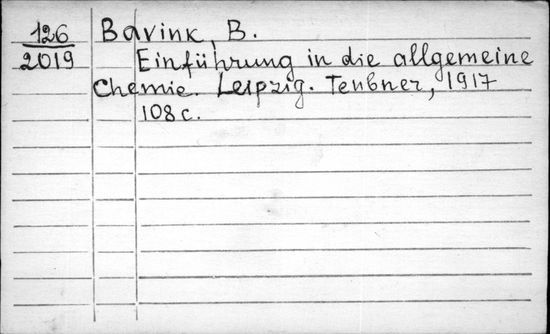 126
2019
Bavink, B.
Einführung in die allgemeine
Chemie. Leipzig. Teubner, 1917
108 c.